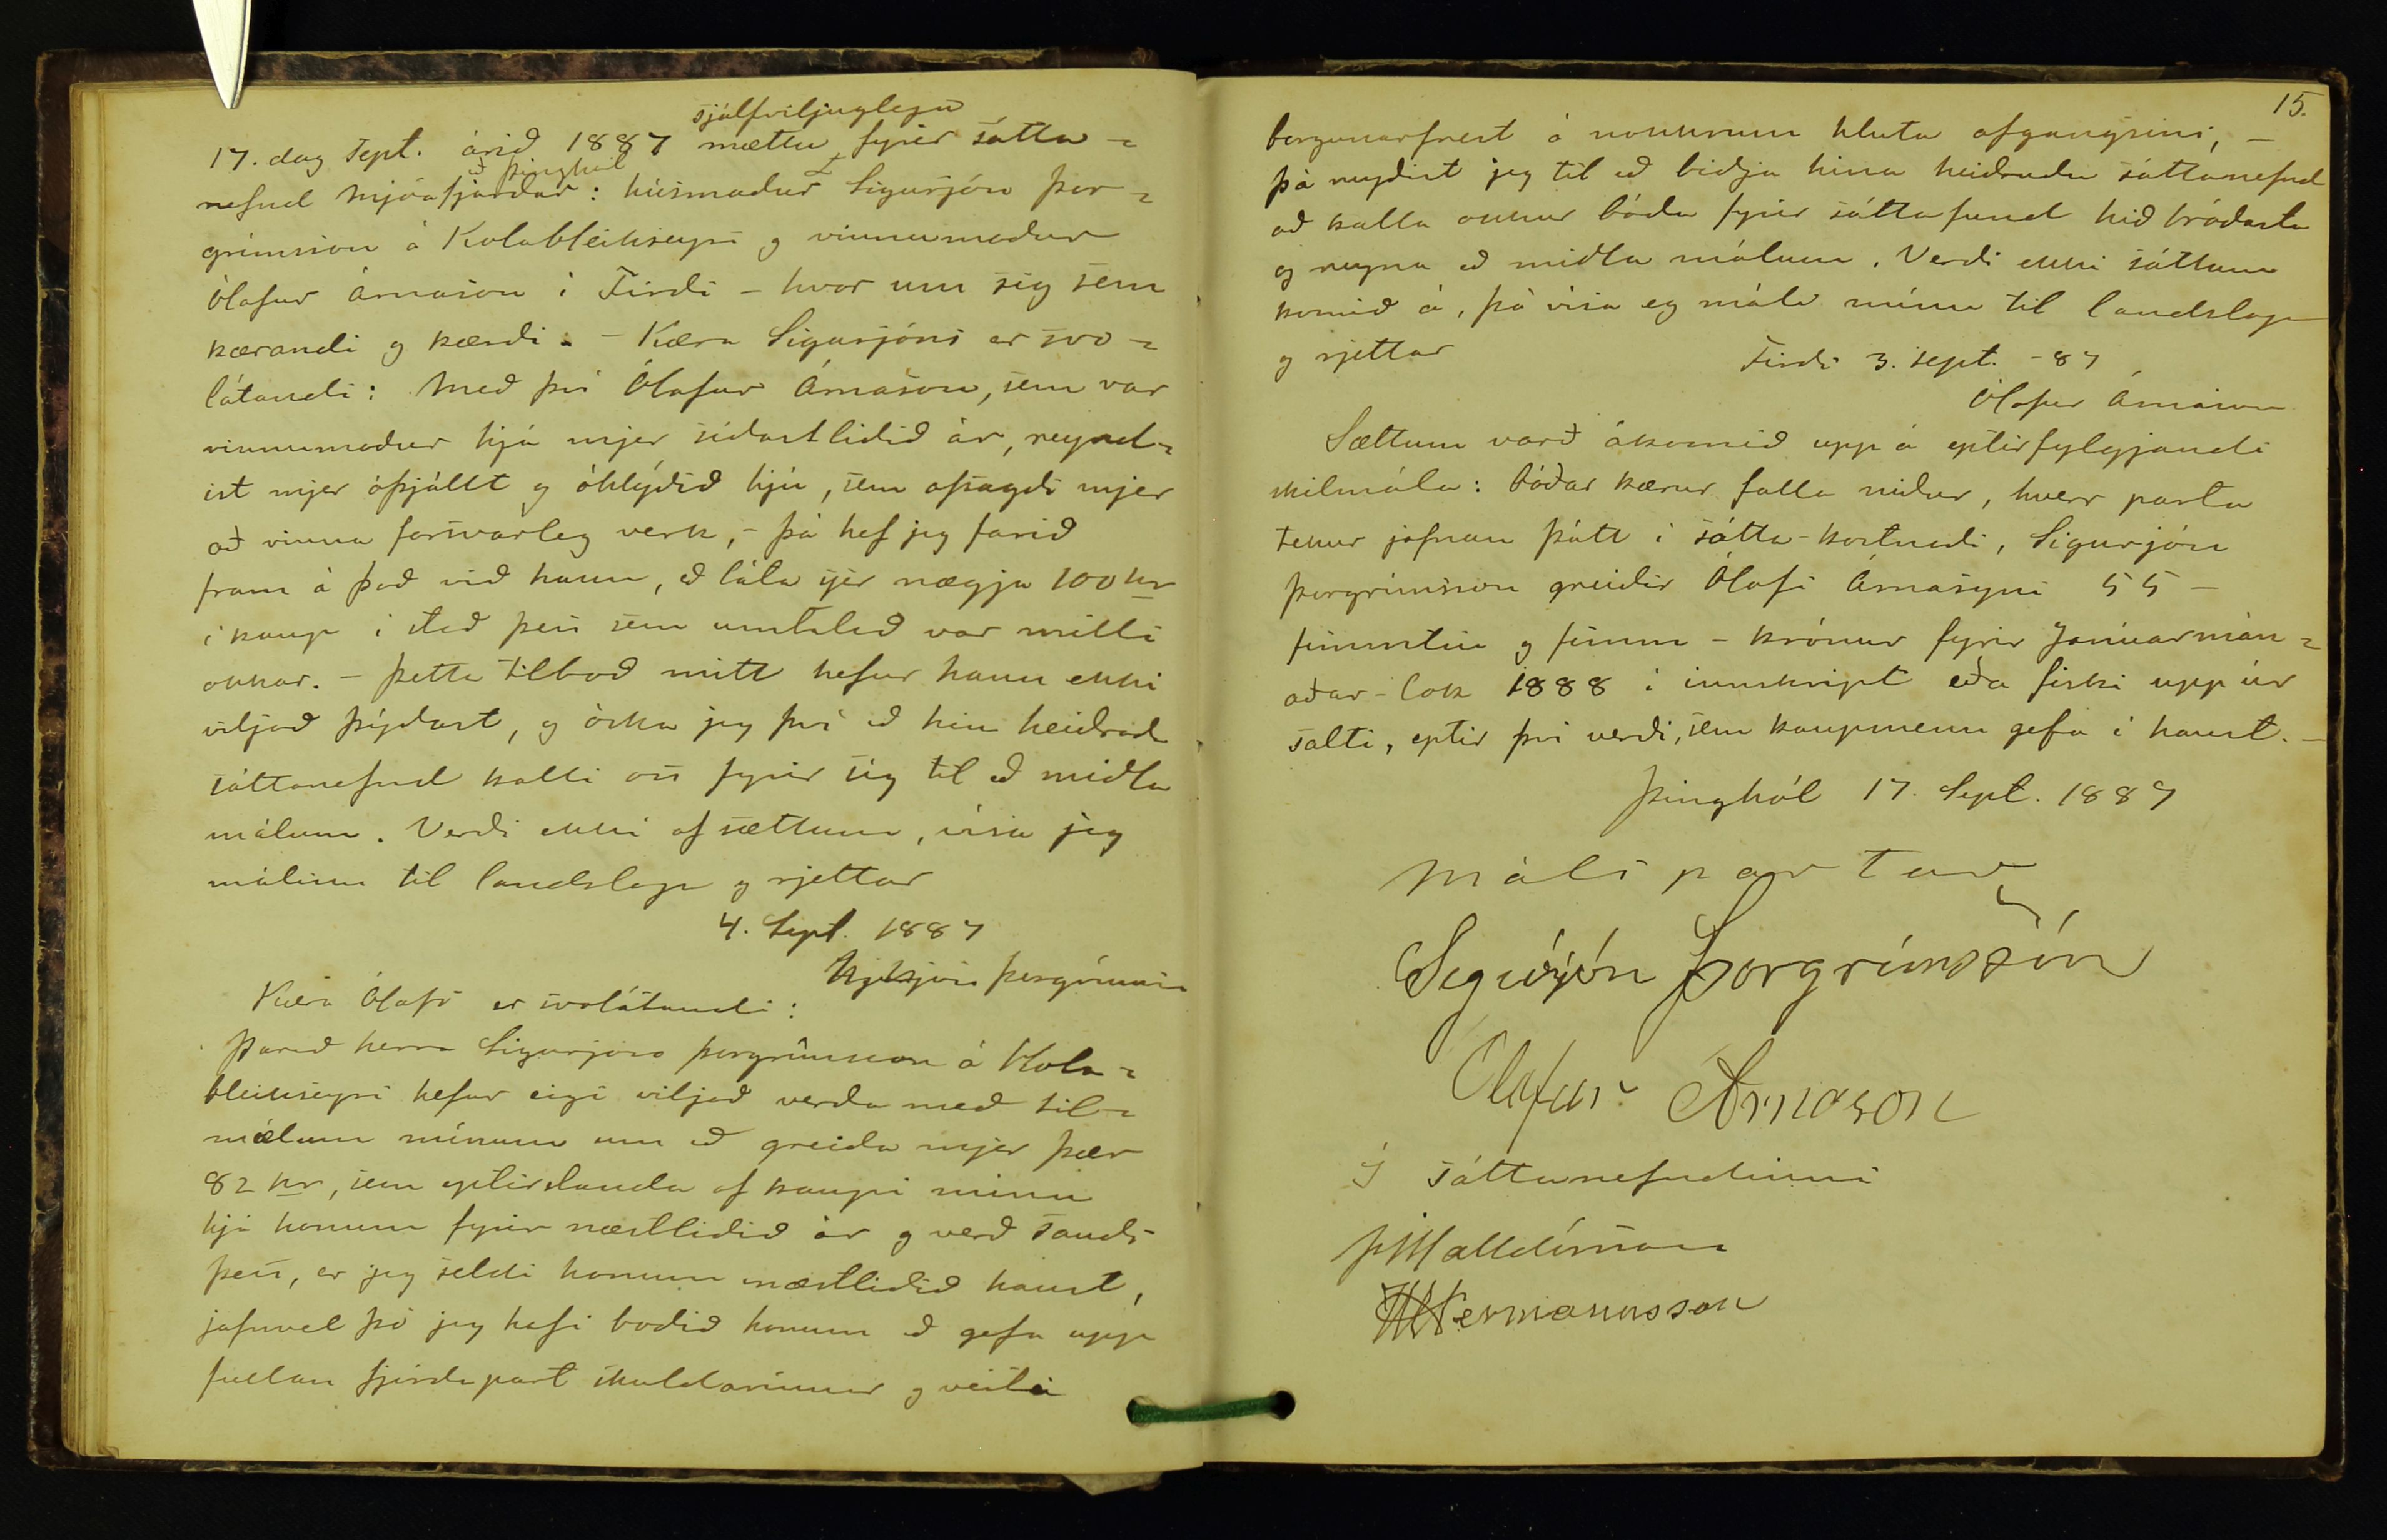 sjálfviljuglega
17. dag Sept. árið 1887 mættu fyrir sátta-
að Þinghól
nefnd Mjóafjarðar: húsmaður Sigurjón Þor-
grímsson á Kolableikseyri og vinnumaður
Ólafur Árnason í Firði - hvor um sig sem
kærandi og kærði. - Kæra Sigurjóns er svo-
látandi: Með því Ólafur Árnason, sem var
vinnumaður hjá mjer síðastliðið ár, reynd-
ist mjer óþjállt og óhlýðið hjú, sem afsagði mjer
að vinna forsvarleg verk, - þá hef jeg farið
fram á það við hann, að láta sjer nægja 100 kr
í kaup í stað þess sem umtalað var milli
okkar. - Þetta tilboð mitt hefur hann ekki
viljað þýðast, og óska jeg því að hin heiðraða
sáttanefnd kalli oss fyrir sig til að miðla
málum. Verði ekki af sættum, vísa jeg
málinu til landslaga og rjettar
4. Sept. 1887
Sigurjón Þorgrímsson
Kæra Ólafs er svolátandi:
Þareð herra Sigurjón Þorgrímsson á Kola-
bleikseyri hefur eigi viljað verða með til-
mælum mínum um að greiða mjer þær
82 kr, sem eptirstanda af kaupi mínu
hjá honum fyrir næstliðið ár og verð sauðs
þess, er jeg seldi honum næstliðið haust,
jafnvel þó jeg hafi boðið honum að gefa upp
fullan fjórðapart skuldarinnar og veita
15.
borgunarfrest á nokkrum hluta afgangsins, -
þá neyðist jeg til að biðja hina heiðruðu sáttanefnd
að kalla okkur báða fyrir sáttafund hið bráðasta
og reyna að miðla málum. Verði ekki sáttum
komið á, þá vísa eg máli mínu til landslaga
og rjettar
Firði 3. sept. -87
Ólafur Árnason
Sættum varð ákomið upp á eptirfylgjandi
skilmála: báðar kærur falla niður, hver parta
tekur jafnan þátt í sátta-kostnaði, Sigurjón
Þorgrímsson greiðir Ólafi Árnasyni 55 -
fimmtíu og fimm - krónur fyrir Janúarmán-
aðar-lok 1888 í innskript eða fiski upp úr
salti, eptir því verði, sem kaupmenn gefa í haust. -
Þinghól 17. Sept. 1887
Málspartar
Sigurjón Þorgrímssón
Ólafur Árnason
Í sáttanefndinni
Þ Halldórsson
Hermannsson